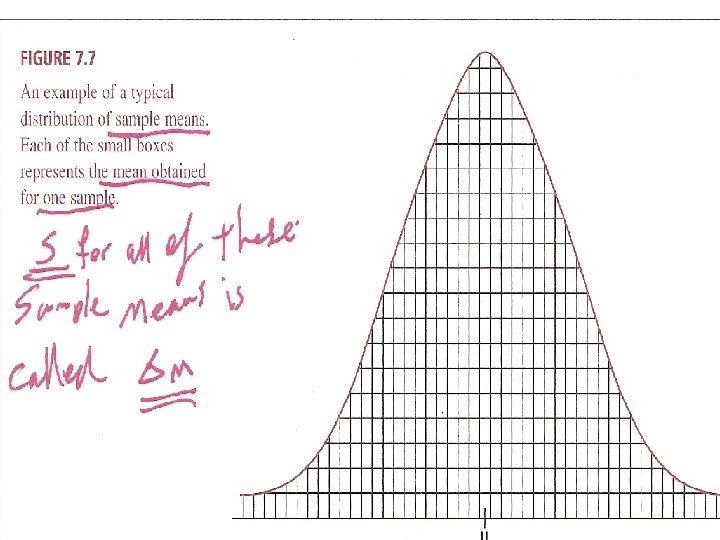 FIGURE 7.7
An example of a typical
distribution of sample means.
Each of the small boxes
represents the mean obtained
for one sample.
S for all of these
Sample Means is
called σM
μ